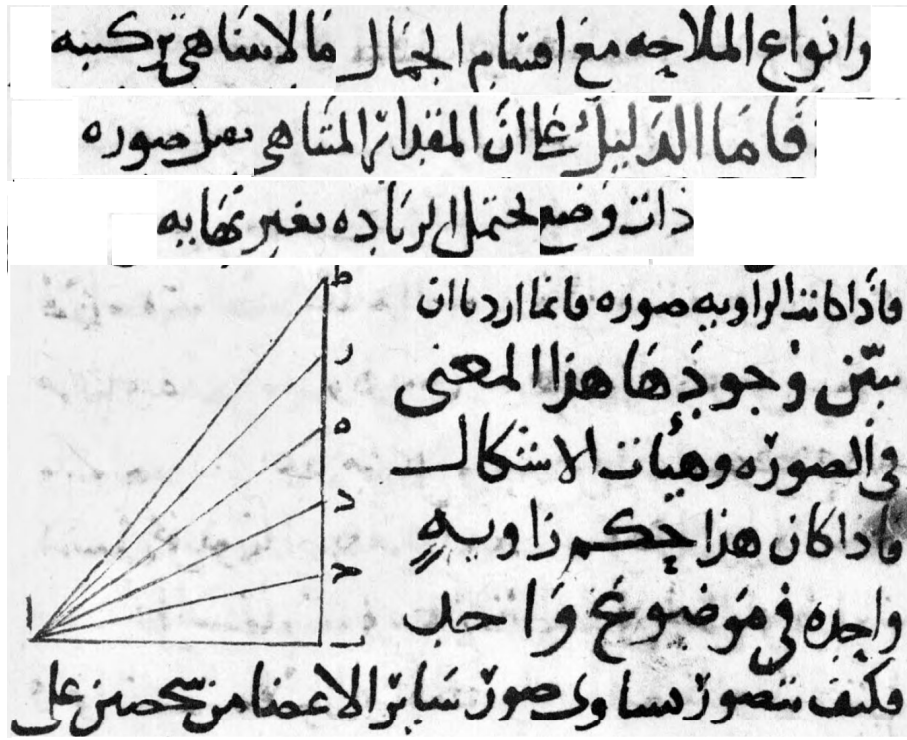 وانواع الملاحه مع اقسام الجمال مالا يتناهى تركيبه
فاما الدليل على ان المقدار المتناهي يقبل صوره
ذات وضع يحتمل الزياده بغير نهايه
فاذا كانت الزاويه صوره فانما اردنا ان
نبين وجود هذا المعنى
في الصوره وهيئات الاشكال
فاذا كان هذا حكم زاويه
واحده في موضوع واحد
فكيف يتصور تساوي صور ساير الاعضا من شخصين على
ط
ر
ه
د
ح
ا
ب